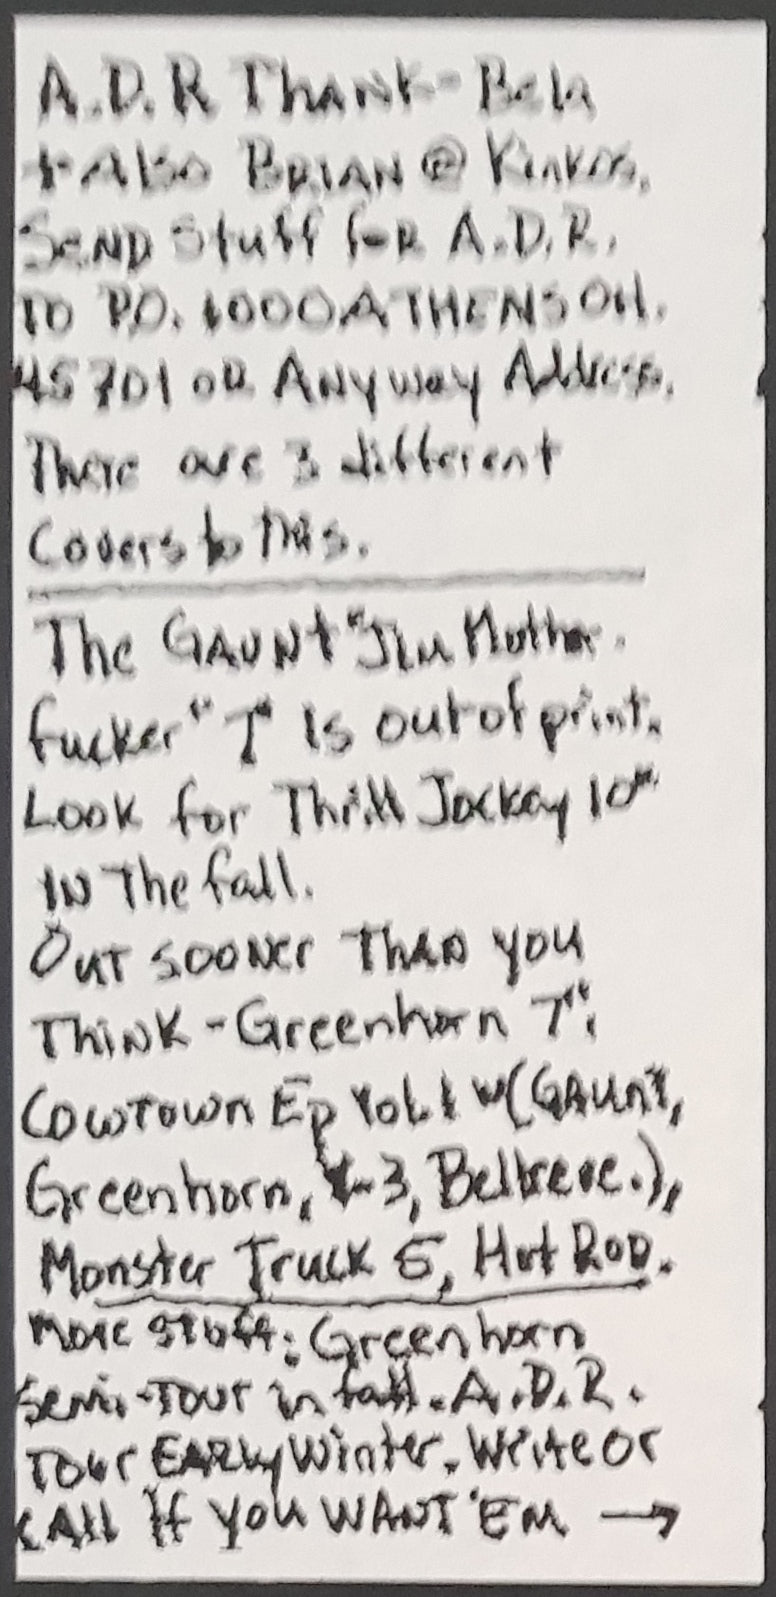 A.D.R Thank- Bela
+ Also BRIAN @ Kinkos.
SEND Stuff foR A.D.R.
TO P.O. 1000 ATHENS OH.
45701 OR Anyway Address.
There are 3 different
Covers to this.
The GAUNT "Jim Mother.
fucker" 7" is out of print.
Look for Thrill Jockey 10"
IN The fall.
OUT SOONER THAN YOU
THINK - Greenhorn 7",
COWTOWN Ep Vol. 1 w(GAUNT,
Greenhorn, V-3, Belreve.),
Monster Truck 5, Hot ROD.
More stuff: Greenhorn
Semi-Tour in fall. A.D.R.
TOUR EARLY Winter. Write or
CAll If you WANT 'EM →